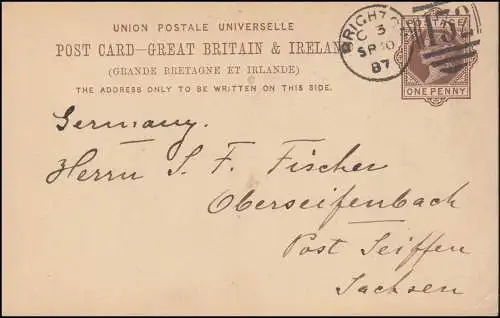 UNION POSTALE UNIVERSELLE
POST CARD—GREAT BRITAIN & IRELAN
(GRANDE BRETAGNE ET IRLANDE)
THE ADDRESS ONLY TO BE WRITTEN ON THIS SIDE.
BRIGHTO
C 3
SP 10
87
132
POSTAGE
ONE PENNY
Germany.
Herrn S. F. Fischer
Oberseifenbach
Post Seiffen
Sachsen